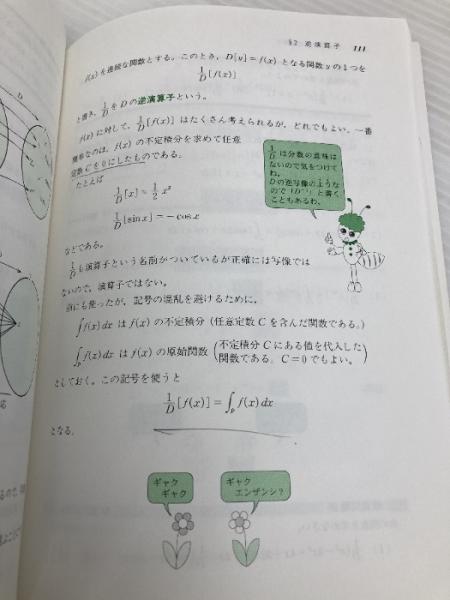 §2 逆演算子 111
f(x)を連続な関数とする。このとき，D[y]=f(x)となる関数yの1つを
1/D [f(x)]
と書き，1/D をDの逆演算子という。
f(x)に対して，1/D [f(x)] はたくさん考えられるが，どれでもよい。一番
簡単なのは，f(x)の不定積分を求めて任意
定数Cを0にしたものである。
たとえば
1/D [x] = 1/2 x²
1/D [sin x] = −cos x
などである。
1/D は分数の意味は
ないので気をつけて
ね。
Dの逆写像のような
ので「D⁻¹」と書く
こともあるわ。
1/D も演算子という名前がついているが正確には写像では
ないので，演算子ではない。
前にも使ったが，記号の混乱を避けるために，
∫f(x)dx は f(x)の不定積分（任意定数Cを含んだ関数である。）
∫ₚf(x)dx は f(x)の原始関数（不定積分Cにある値を代入した
関数である。C=0でもよい。）
としておく。この記号を使うと
1/D [f(x)] = ∫ₚ f(x)dx
となる。
ギャク
ギャク
ギャク
エンザンシ？